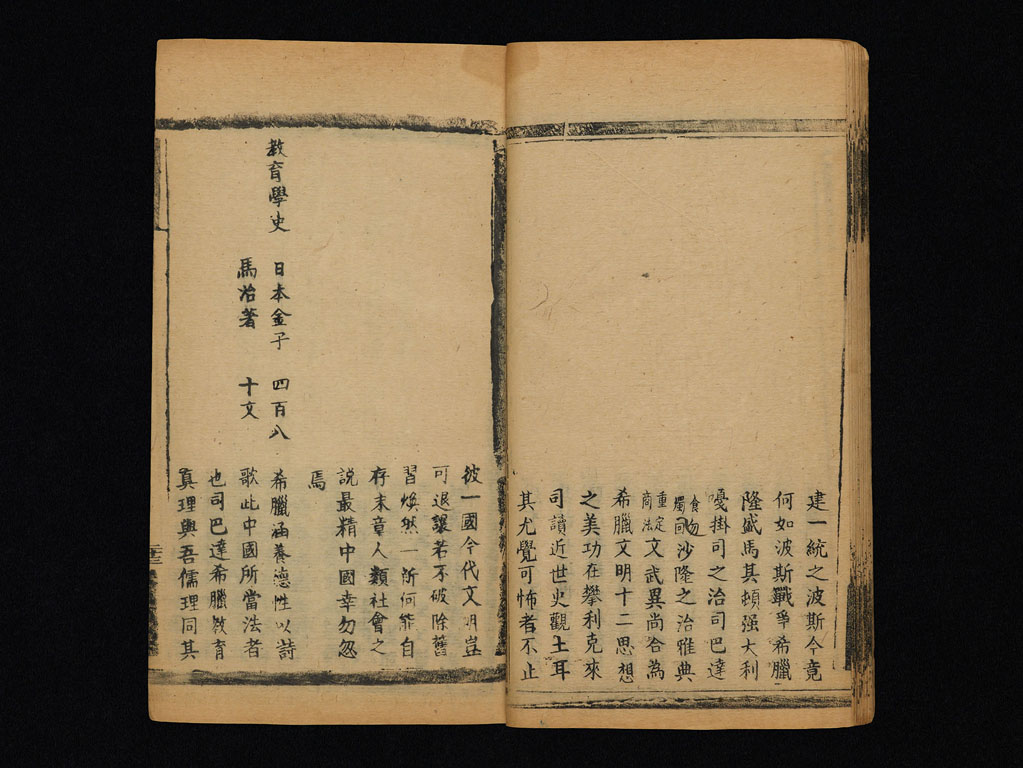 建一統之波斯今竟
何如波斯戰爭希臘
隆盛馬其頓强大利
嘎掛司之治司巴達
食物
獨歐沙隆之治雅典
重定
商法文武異尚各為
希臘文明十二思想
之美功在攀利克來
司讀近世史觀土耳
其尤覺可怖者不止
彼一國今代文明豈
可退讓若不破除舊
習煥然一新何能自
存末章人類社會之
說最精中國幸勿忽
焉
教育學史 日本金子 四百八
希臘涵養德性以詩
馬治著 十文
歌此中國所當法者
也司巴達希臘教育
真理與吾儒理同其